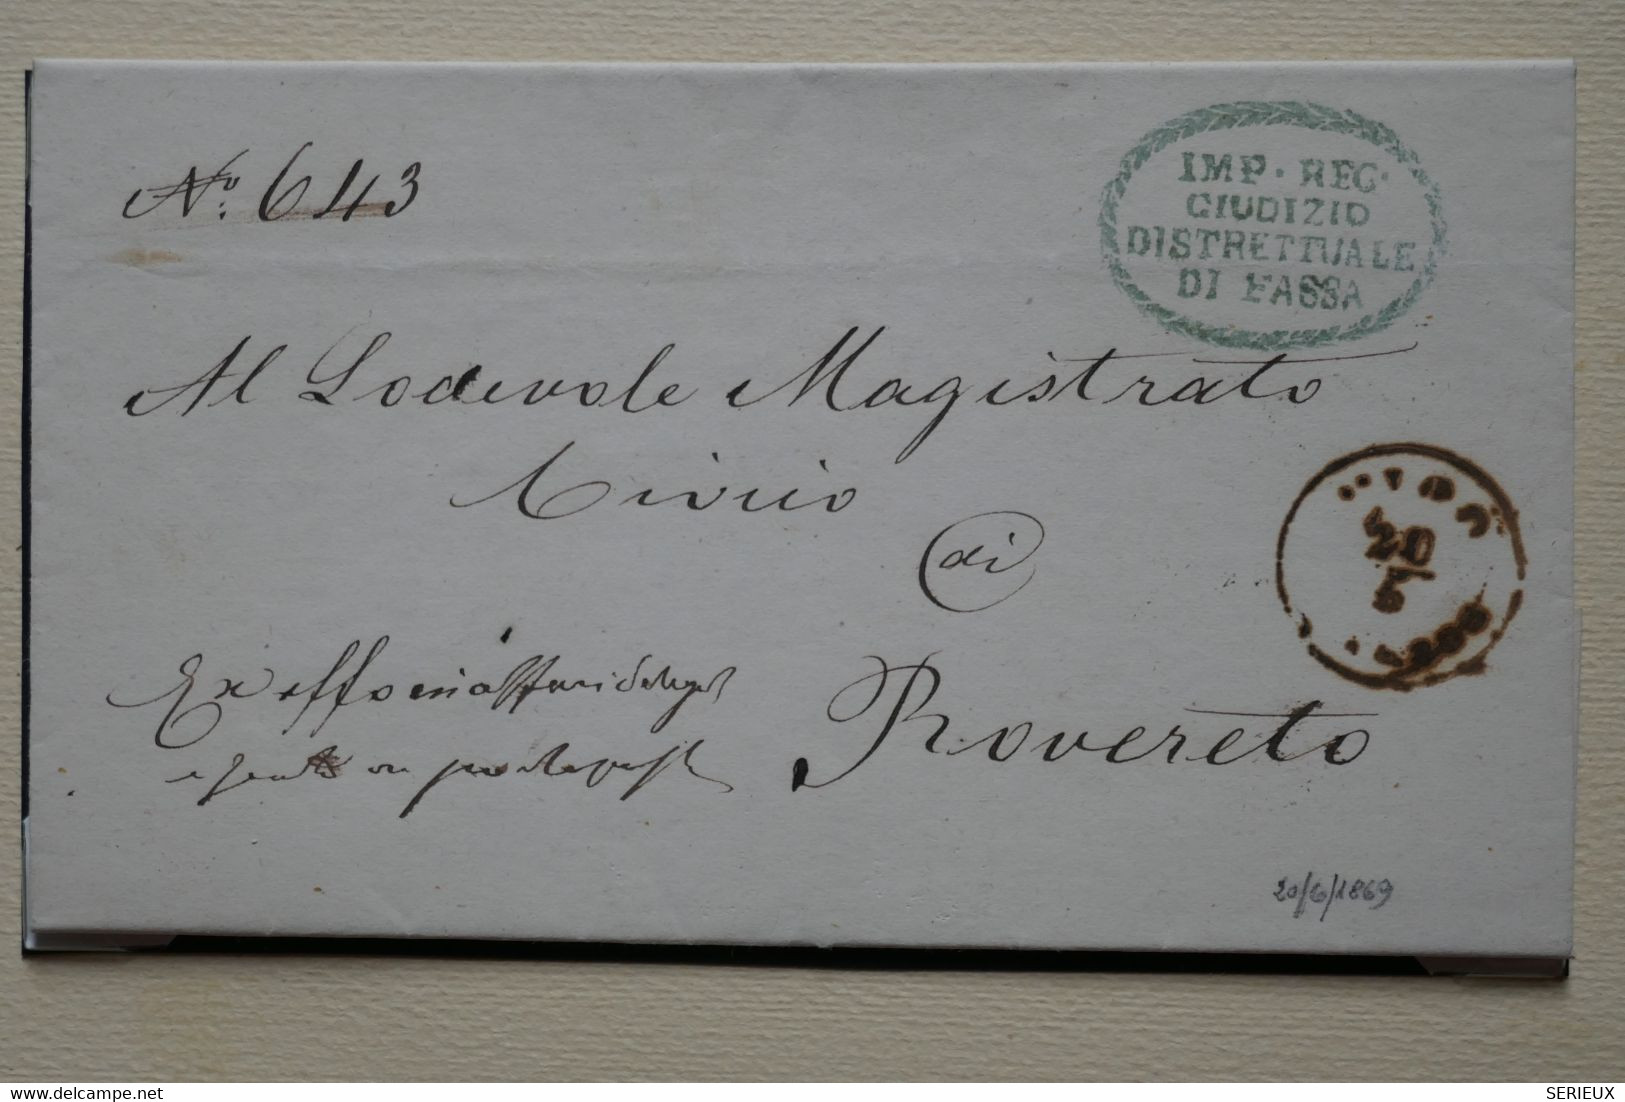 No. 643
IMP. REG.
GIUDIZIO
DISTRETTUALE
DI FASSA
Al Lodevole Magistrato
Civico
di
20
5
Ex offo
Rovereto
20/6/1869
delcampe.net
SERIEUX